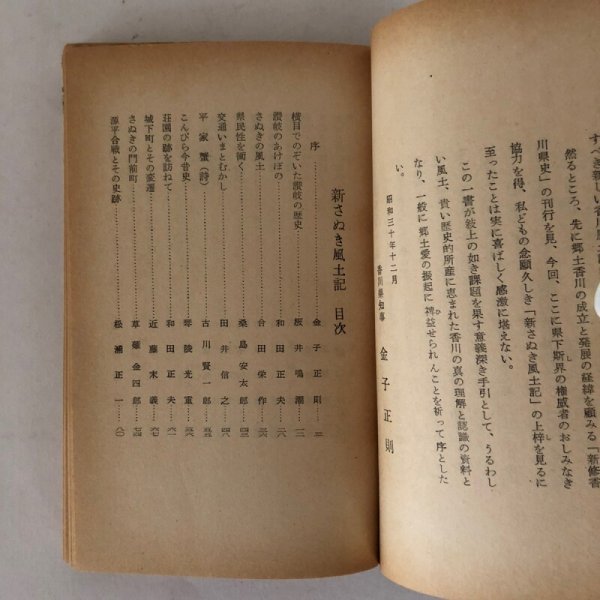 すべき新しい香川風土記
然るところ、先に郷土香川の成立と発展の経緯を顧みる「新修香
川県史」の刊行を見、今回、ここに県下斯界の権威者のおしみなき
協力を得、私どもの念願久しき「新さぬき風土記」の上梓を見るに
至ったことは実に喜ばしく感激に堪えない。
この一書が紋上の如き課題を果す意義深き手引として、うるわし
い風土、貴い歴史的所産に恵まれた香川の真の理解と認識の資料と
なり、一般に郷土愛の振起に裨益せられんことを祈って序とした
い。
昭和三十年十二月
香川県知事 金子正則
新さぬき風土記 目次
序 金子正則 三
横目でのぞいた讃岐の歴史 坂井鳴潮 一三
讃岐のあけぼの 和田正夫 二八
さぬきの風土 合田栄作 三六
県民性を衝く 桑島安太郎 四三
交通いまとむかし 田井信之 四八
平家蟹(詩) 古川賢一郎 五三
こんぴら今昔史 琴陵光重 五五
荘園の跡を訪ねて 和田正夫 六一
城下町とその変遷 近藤末義 六七
さぬきの門前町 草薙金四郎 七四
源平合戦とその史跡 松浦正一 八〇